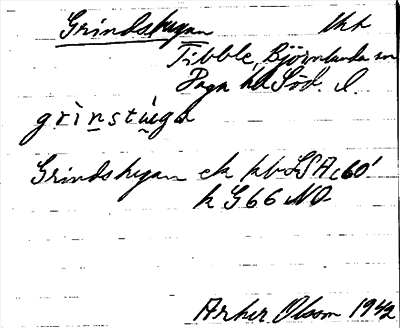 Grindstugan lht
Tibble, Björnlunda sn
Daga hd Söd. l.
grìnstù̱ga
Grindstugan ek kbl SA c60'
k G66 NO
Arkur. Olsson 1942